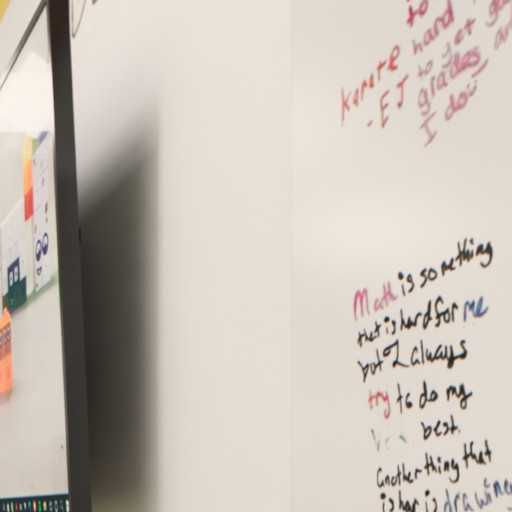 to
hard
Karate to get
- EJ grades
I do
Math is something
that is hard for me
but I always
try to do my
best.
another thing that
is har is drawing